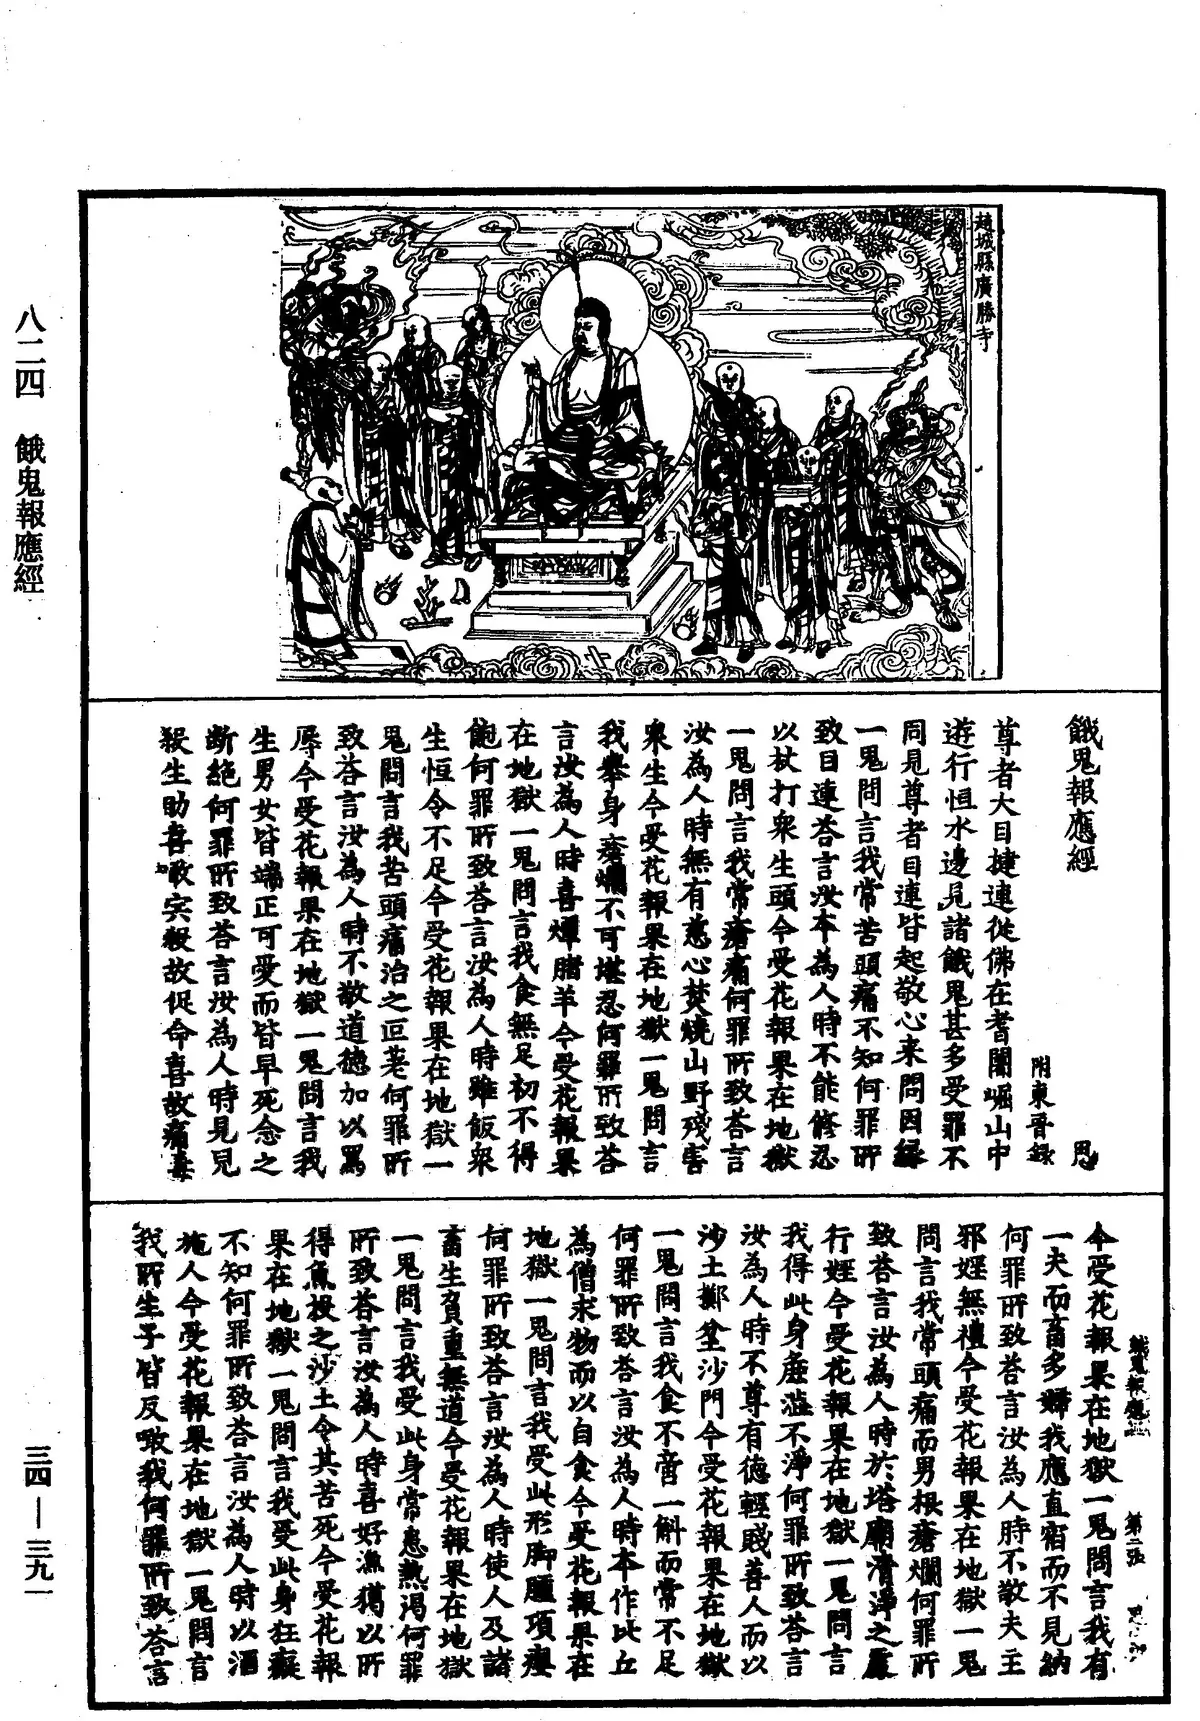 趙城縣廣勝寺
八二四　餓鬼報應經
餓鬼報應經
附東晋録
尊者大目揵連從佛在耆闍崛山中
遊行恒水邊見諸餓鬼甚多受罪不
同見尊者目連皆起敬心来問因緣
一鬼問言我常苦頭痛不知何罪所
致目連荅言汝本為人時不能修忍
以杖打衆生頭今受花報果在地獄
一鬼問言我常瘡痛何罪所致荅言
汝為人時無有慈心焚燒山野殘害
衆生今受花報果在地獄一鬼問言
我舉身瘡爛不可堪忍何罪所致荅
言汝為人時喜燖腤羊今受花報果
在地獄一鬼問言我食無足初不得
飽何罪所致荅言汝為人時雖飯衆
生恒令不足今受花報果在地獄一
鬼問言我苦頭痛治之叵差何罪所
致荅言汝為人時不敬道德加以罵
辱今受花報果在地獄一鬼問言我
生男女皆端正可愛而皆早死念之
断絶何罪所致荅言汝為人時見兒
殺生助喜噉害殺故促命喜故痛毒
今受花報果在地獄一鬼問言我有
一夫而畜多婦我應直宿而不見納
何罪所致荅言汝為人時不敬夫主
邪婬無禮今受花報果在地獄一鬼
問言我常頭痛而男根瘡爛何罪所
致荅言汝為人時於塔廟清淨之處
行婬今受花報果在地獄一鬼問言
我得此身塵溢不淨何罪所致荅言
汝為人時不尊有德輕賤善人而以
沙土擲坌沙門今受花報果在地獄
一鬼問言我食不啻一斛而常不足
何罪所致荅言汝為人時本作比丘
為僧求物而以自食今受花報果在
地獄一鬼問言我受此形脚腫項癭
何罪所致荅言汝為人時使人及諸
畜生負重無道今受花報果在地獄
一鬼問言我受此身常患熱渴何罪
所致荅言汝為人時喜好漁獵以所
得魚投之沙土令其苦死今受花報
果在地獄一鬼問言我受此身狂癡
不知何罪所致荅言汝為人時以酒
施人今受花報果在地獄一鬼問言
我所生子皆反噉我何罪所致荅言
三四—三九一